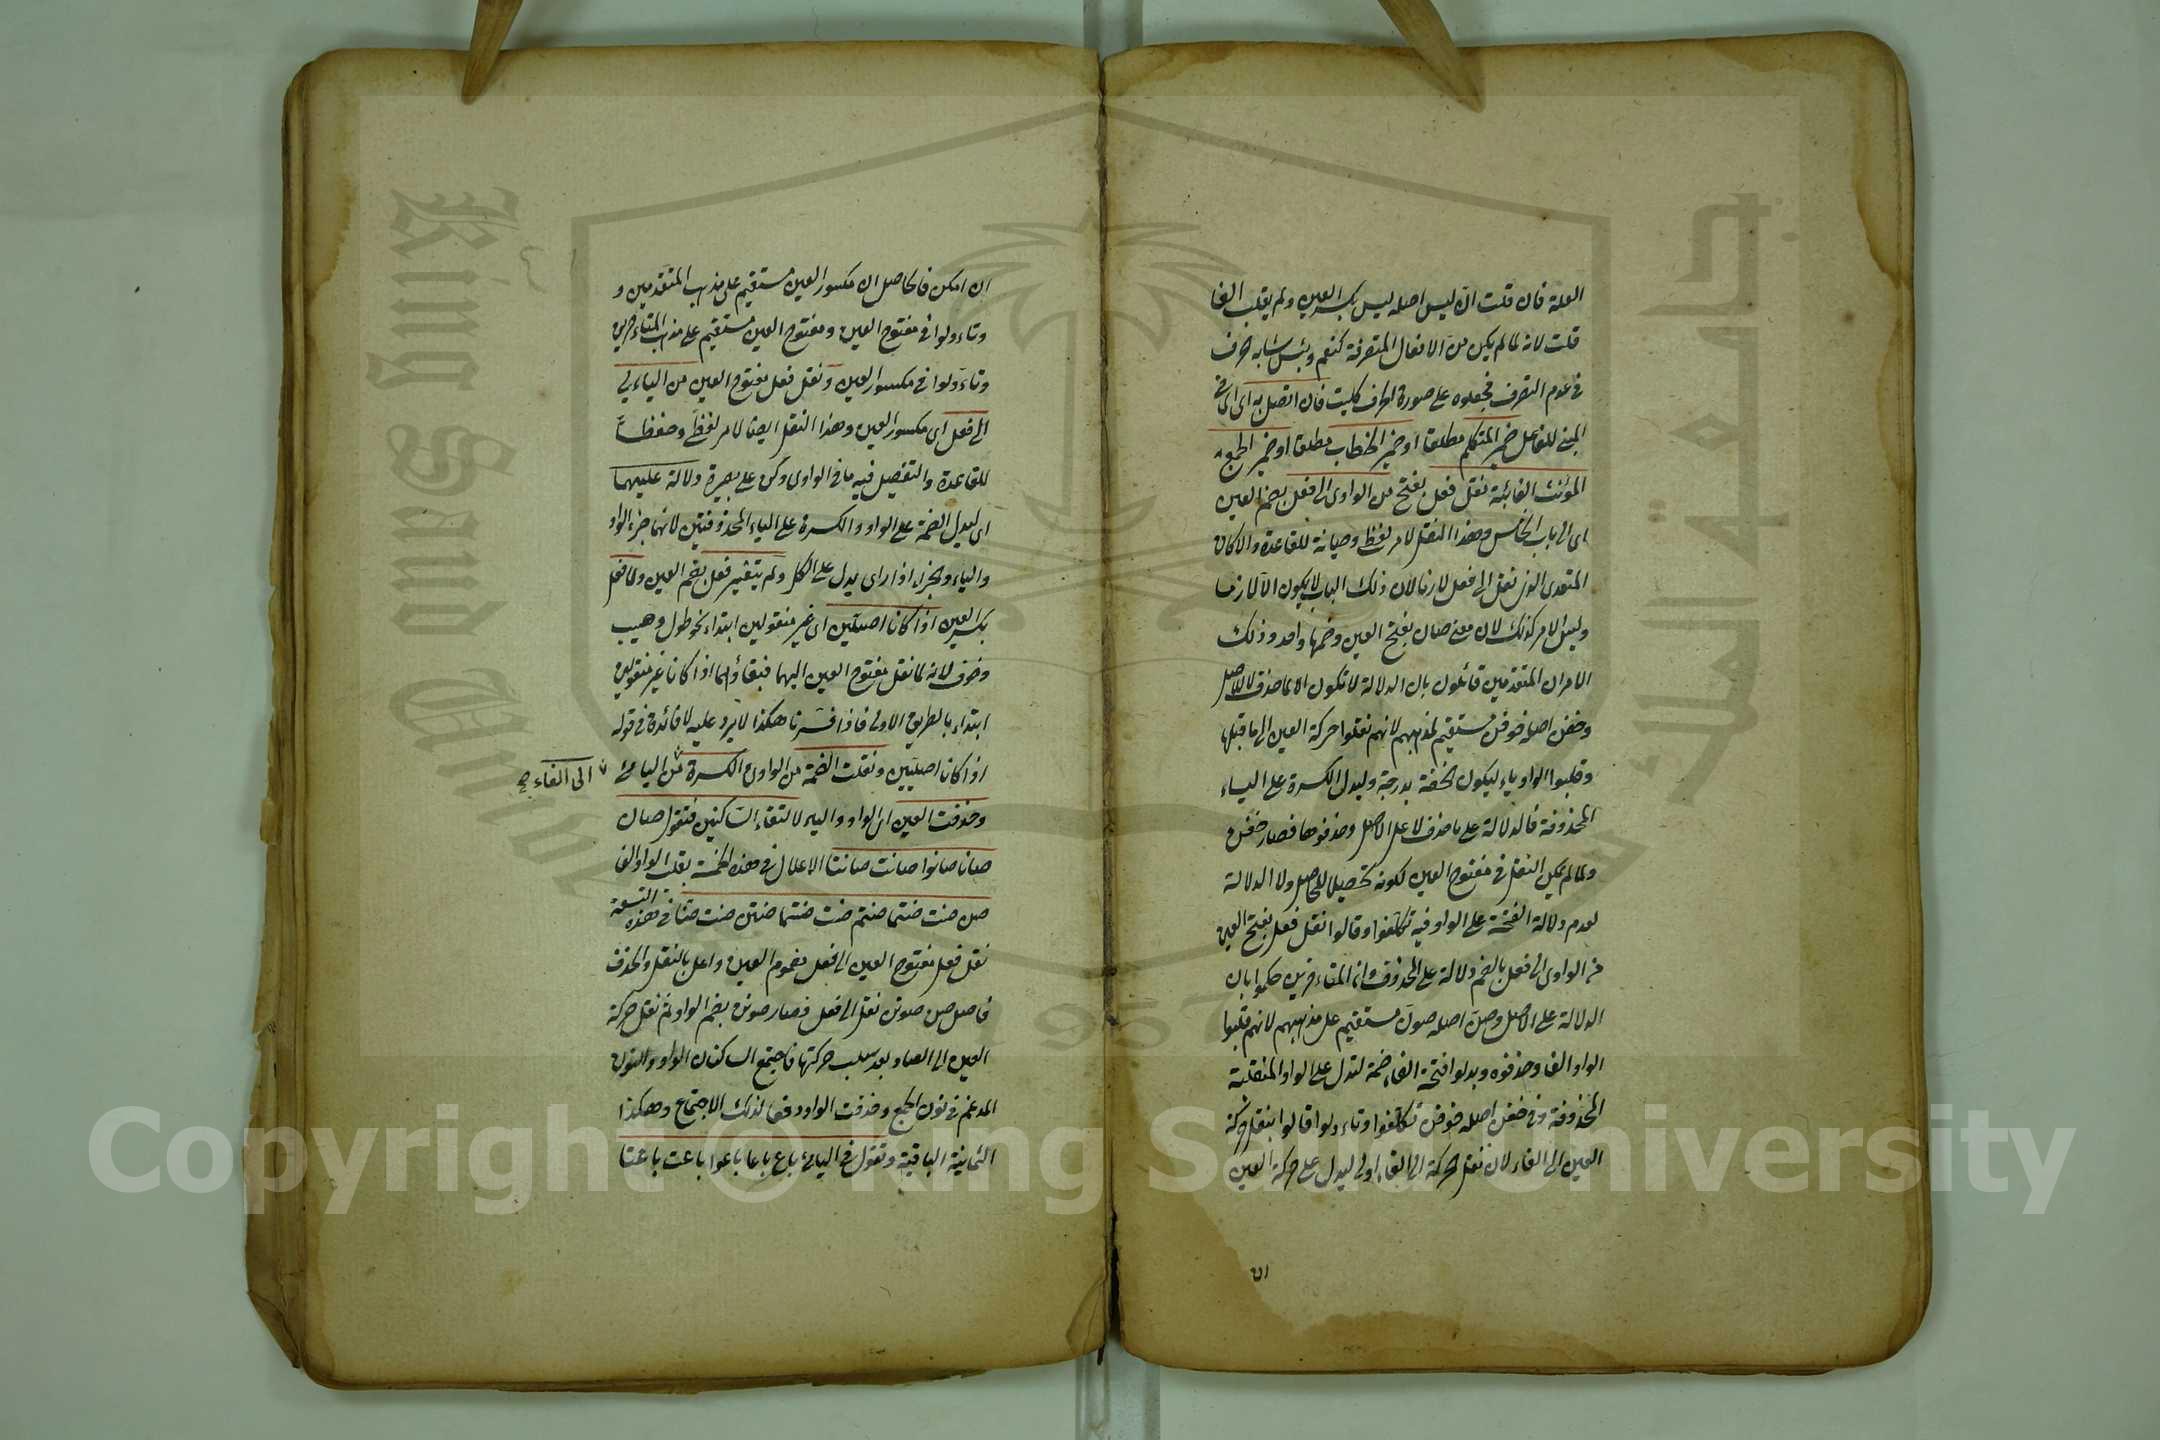 العلة فان قلت ان ليس اصله ليس بكسر العين ولم يقلب الفا
قلت لانه لما لم يكن من الافعال المتصرفة كنعم وبئس شابه حرف
في عدم التصرف فجعلوه على صورة الحرف كليت فان اتصل به اى
المبنى للفاعل ضمير المتكلم مطلقا او ضمير الخطاب مطلقا او ضمير الجمع
المؤنث الغائبة نقل فعل بفتح من الواوى الى فعل بضم العين
اى الى باب الخامس وهذا النقل لامر لفظى وصيانة للقاعدة والا لكان
المتعدى الذى نقل الى فعل لازما لان ذلك الباب لا يكون الا لازما
وليس الامر كذلك لان معنى صان بفتح العين وضمها واحد وذلك
الامر ان المتقدمين قائلون بان الدلالة لا تكون الا لما حذف لا للاصل
وخفن اصله خوفن مستقيم لمذهبهم لانهم نقلوا حركة العين الى ما قبلها
وقلبوا الواو ياء ليكون الخفة بدرجة وليدل الكسرة على الياء
المحذوفة فالدلالة على ما حذف لا على الاصل وحذفوها فصار خفن
ولما لم يمكن النقل في مفتوح العين لكونه تحصيلا للحاصل ولا الدلالة
لعدم دلالة الفتحة على الواو فيه تكلفوا وقالوا نقل فعل بفتح العين
من الواوى الى فعل بالضم دلالة على المحذوف وان المتاءخرين حكموا بان
الدلالة على الاصل وصن اصله صون مستقيم على مذهبهم لانهم قلبوا
الواو الفا وحذفوه وبدلوا فتحة الفاء ضمة لتدل على الواو المنقلبة
المحذوفة وفى خفن اصله خوفن تكلفوا وتاءولوا قالوا بنقل حركة
العين الى الفاء لان نقل الحركة الى الفاء اولى ليدل على حركة العين
ان امكن فالحاصل ان مكسور العين مستقيم على مذهب المتقدمين و
وتاءولوا فى مفتوح العين ومفتوح العين مستقيم على مذهب المتاءخرين
وتاءولوا فى مكسور العين ونقل فعل مفتوح العين من اليائى
الى فعل اى مكسور العين وهذا النقل ايضا لامر لفظى وحفظا
للقاعدة والتفصيل فيه ما فى الواوى وكن على بصيرة دلالة عليهما
اى ليدل الضمة على الواو والكسرة على الياء المحذوفتين لانهما جزء الواو
والياء والجزء اذا راى يدل على الكل ولم يتغير فعل بضم العين ولا فعل
بكسر العين اذا كانا اصليين اى غير منقولين ابتداء نحو طول وهيب
وخوف لانه لما نقل مفتوح العين اليهما فبقاؤهما اذا كانا غير منقولين
ابتداء بالطريق الاولى فاذا فسرنا هكذا لا يرد عليه لا فائدة فى قوله
اذا كانا اصليين ونقلت الضمة من الواو والكسرة من الياء
الى الفاء صح
وحذفت العين اى الواو والياء لالتقاء الساكنين فتقول صان
صانا صانوا صانت صانتا الاعلال فى هذه الخمسة بقلب الواو الفا
صن صنت صنتما صنتم صنت صنتما صنتن صنت صنا فى هذه التسعة
نقل فعل مفتوح العين الى فعل مضموم العين واعل بالنقل والحذف
فاصل صن صونن نقل الى فعل فصار صونن بضم الواو ثم نقل حركة
العين الى الصاد بعد سلب حركتها فاجتمع الساكنان الواو والنون
المدغم فى نون الجمع وحذفت الواو دفعا لذلك الاجتماع وهكذا
الثمانية الباقية وتقول فى اليائى باع باعا باعوا باعت باعتا
King Saud University
Copyright © King Saud University